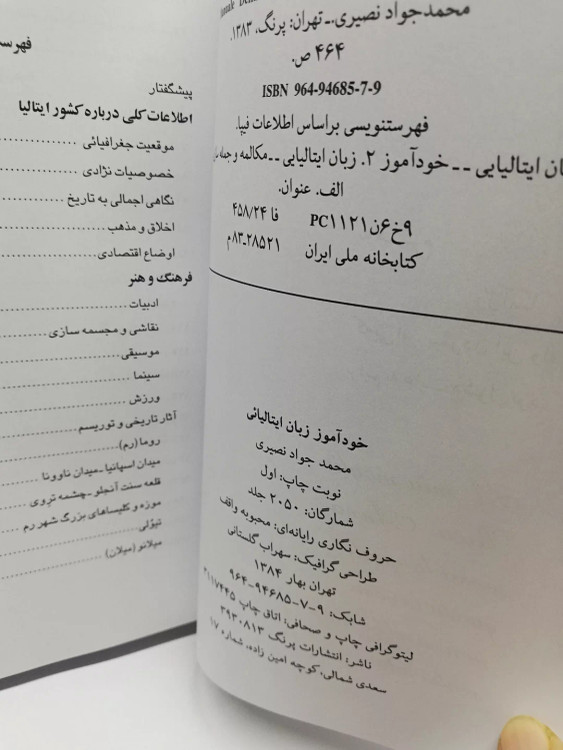 محمدجواد نصیری.ـ تهران: پرنگ، ۱۳۸۳.
۴۶۴ ص.
ISBN 964-94685-7-9
فهرستنویسی براساس اطلاعات فیپا.
ایتالیایی ـ ـ خودآموز ۲. زبان ایتالیایی ـ ـ مکالمه و جمله
الف. عنوان.
۹خ۶ن/PC۱۱۲۱ فا ۴۵۸/۲۴
کتابخانه ملی ایران ۲۸۵۲۱ـ۸۳م
خودآموز زبان ایتالیائی
محمد جواد نصیری
نوبت چاپ: اول
شمارگان: ۲۰۵۰ جلد
حروف نگاری رایانه‌ای: محبوبه واقف
طراحی گرافیک: سهراب گلستانی
تهران بهار ۱۳۸۴
شابک: ۹-۷-۹۴۶۸۵-۹۶۴
لیتوگرافی چاپ و صحافی: اتاق چاپ ۳۱۱۷۴۴۵
ناشر: انتشارات پرنگ ۳۹۳۰۸۱۳
سعدی شمالی، کوچه امین زاده، شماره ۱۷
فهرست
پیشگفتار
اطلاعات کلی درباره کشور ایتالیا
موقعیت جغرافیائی
خصوصیات نژادی
نگاهی اجمالی به تاریخ
اخلاق و مذهب
اوضاع اقتصادی
فرهنگ و هنر
ادبیات
نقاشی و مجسمه سازی
موسیقی
سینما
ورزش
آثار تاریخی و توریسم
روما (رم)
میدان اسپانیا ـ میدان ناوونا
قلعه سنت آنجلو ـ چشمه تروی
موزه و کلیساهای بزرگ شهر رم
تیوُلی
میلانو (میلان)